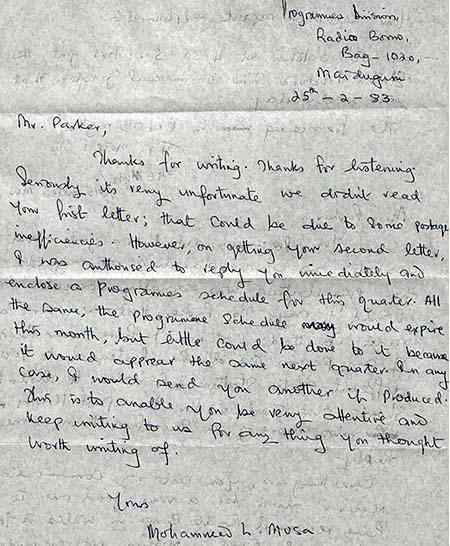 Programmes Division
Radio Borno,
Bag - 1020,
Maiduguri
25th - 2 - 83.
Mr. Parker,
Thanks for writing. Thanks for listening
Seriously its very unfortunate we didn't read
Your first letter; that could be due to some postage
inefficiencies. However, on getting your second letter,
I was authorised to reply you immediately and
enclose a Programmes schedule for this quarter. All
the same, the Programme Schedule would expire
this month, but little could be done to it because
it would apprear the same next quarter. In any
case, I would send you another if produced.
This is to anable you be very attentive and
keep writing to us for any thing you thought
worth writing of.
Yours
Mohammed L. Musa